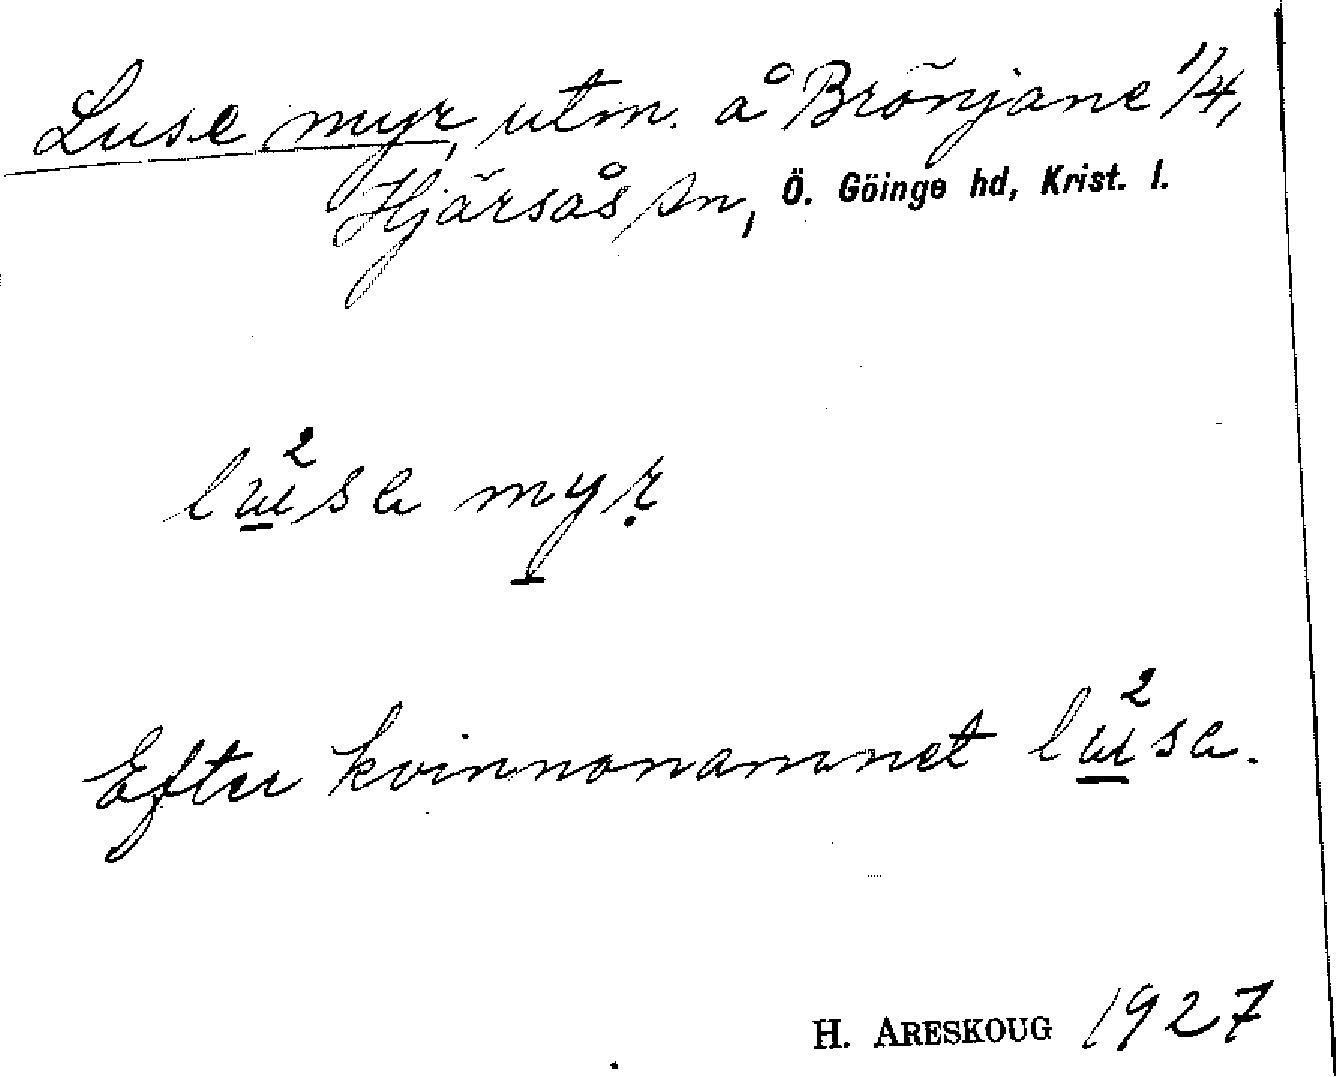 Luse myr, utm. å Brönjane 1/4,
Hjärsås sn, Ö. Göinge hd, Krist. l.
myr
Efter kvinnonamnet
H. ARESKOUG 1927